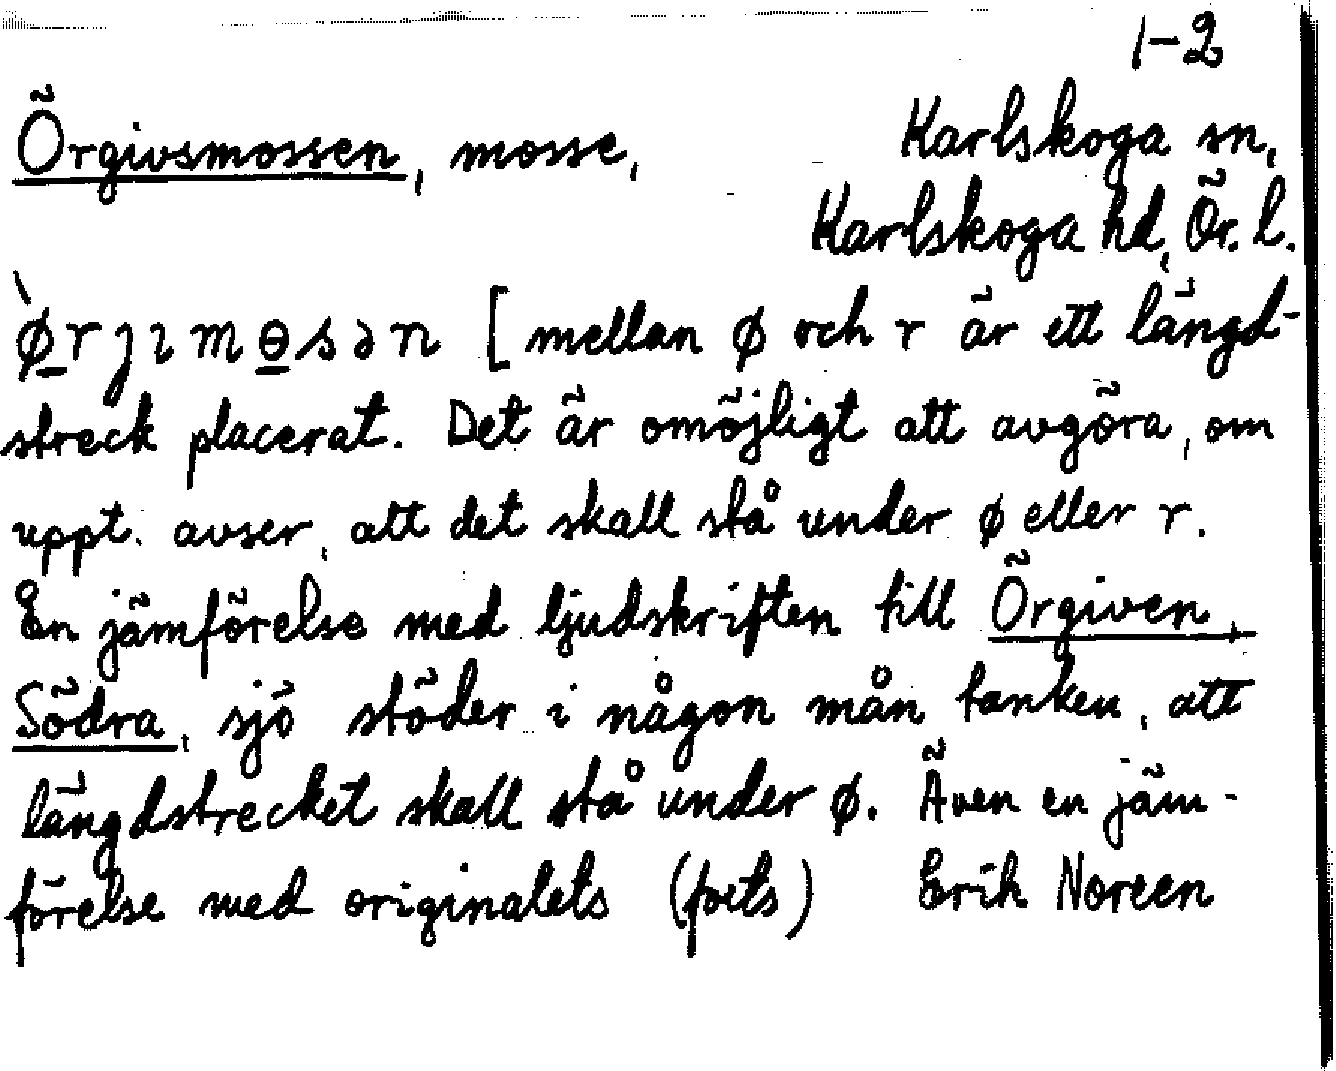 1-2
Örgivsmossen, mosse, Karlskoga sn,
Karlskoga hd, Ör. l.
ø̀rjımɵsən [mellan ø och r är ett längd-
streck placerat. Det är omöjligt att avgöra, om
uppt. avser, att det skall stå under ø eller r.
En jämförelse med ljudskriften till Örgiven,
Södra, sjö stöder i någon mån tanken, att
längdstrecket skall stå under ø. Även en jäm-
förelse med originalets (forts) Erik Noreen